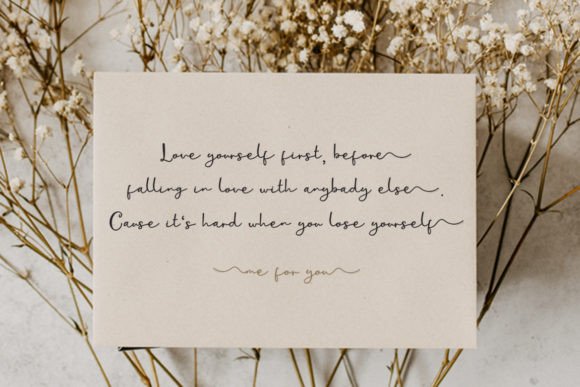 Love yourself first, before
falling in love with anybady else.
Cause it's hard when you lose yourself
me for you